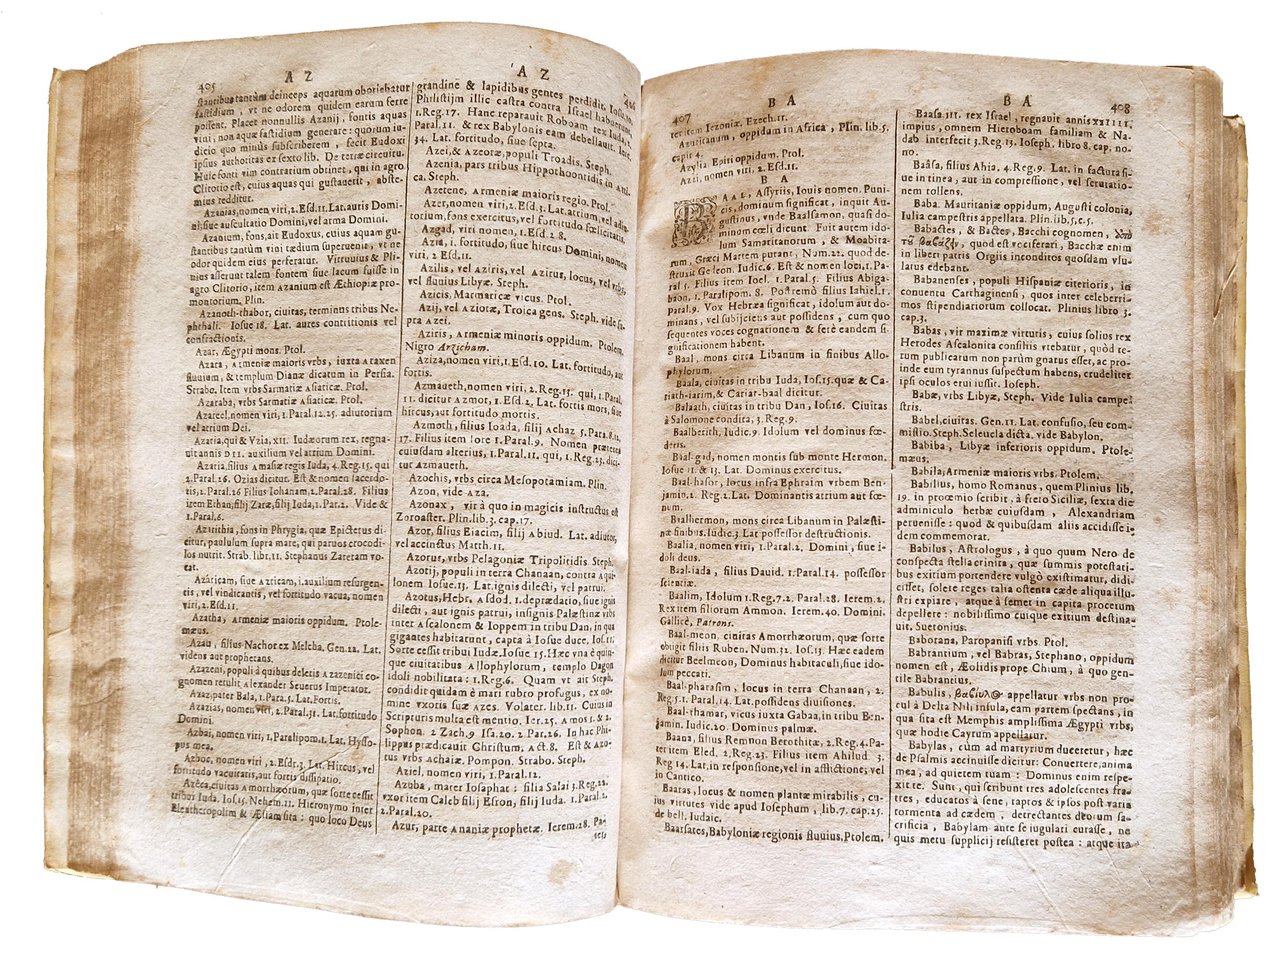 405
A Z
stantibus tantùm deinceps aquarum oboriebatur
fastidium , vt ne odorem quidem earum ferre
possent. Placet nonnullis Azanij, fontis aquas
vini, non aquæ fastidium generare : quorum iu-
dicio quo minùs subscriberem , fecit Eudoxi
ipsius authoritas ex sexto lib. De terræ circuitu.
Huic fonti vim contrariam obtinet , qui in agro
Clitorio est, cuius aquas qui gustauerit , abste-
mius redditur.
Azanias, nomen viri, 2. Esd. 11. Lat. auris Domi-
ni: siue auscultatio Domini, vel arma Domini.
Azanium, fons, ait Eudoxus, cuius aquam gu-
stantibus tantùm vini tædium superuenit , vt ne
odor quidem eius perferatur. Vitruuius & Pli-
nius asserunt talem fontem siue lacum fuisse in
agro Clitorio , item Azanium est Æthiopiæ pro-
montorium, Plin.
Azanoth-thabor, ciuitas, terminus tribus Ne-
phthali. Iosue 18. Lat. aures contritionis vel
confractionis.
Azar, Ægypti mons. Ptol.
Azara , Armeniæ maioris vrbs , iuxta Araxen
fluuium , & templum Dianæ dicatum in Persia.
Strabo. Item vrbs Sarmatiæ Asiaticæ. Ptol.
Azaraba, vrbs Sarmatiæ Asiaticæ. Ptol.
Azareel, nomen viri, 1. Paral. 12. 25. adiutorium
vel atrium Dei.
Azaria, qui & Vzia, xii. Iudæorum rex, regna-
uit annis DII. auxilium Domini.
Azaria, filius Amasiæ regis Iuda, 4. Reg. 15. qui
2. Paral. 26. Ozias dicitur. Est & nomen sacerdo-
tis, 2. Paral. 26 Filius Iohanam, 2. Paral. 28. Filius
item Ethan, filij Zaræ, filij Iuda, 1. Par. 2. Vide &
1. Paral. 6.
Azaritia , fons in Phrygia, quæ Epictetus di-
citur, paululum supra mare, qui paruos crocodi-
los nutrit. Strab. lib. 11. Stephanus Zaretam vo-
cat.
Azaricam, siue Azricam, 1. auxilium resurgen-
tis, vel vindicantis, vel fortitudo vacua, nomen
viri, 2. Esd. 11.
Azatha, Armeniæ maioris oppidum. Ptole-
mæus.
Azau , filius Nachor ex Melcha, Gen. 22. Lat.
videns aut prophetans.
Azazeni, populi à quibus deletis Azazenici co-
gnomen retulit Alexander Seuerus Imperator.
Azaz, pater Bala, 1. Para. 5. Lat. Fortis.
Azazias, nomen viri, 2. Paral. 31. Lat. fortitudo
Domini.
Azbai, nomen viri, 1. Paralipom. 1. Lat. Hysso-
pus mea.
Azboc, nomen viri, 2. Esdr. 3. Lat. Hircus, vel
fortitudo vacuitatis, aut fortis dissipatio.
Azeca, ciuitas Amorrhæorum, quæ sorte cessit
tribui Iuda. Ios. 15. Nehem. 11. Hieronymo inter
Eleutheropolim & Æliam sita : quo loco Deus
A Z
grandine & lapidibus gentes perdidit, Iosu. 10.
Philistijm illic castra contra Israel habuerunt,
1. Reg. 17. Hanc reparauit Roboam rex Iuda, 2.
Paral. 11. & rex Babylonis eam debellauit. Iere.
34. Lat. fortitudo, siue septa.
Azei, & Azeoræ, populi Troadis. Steph.
Azenia, pars tribus Hippothoontidis in Atti-
ca. Steph.
Azetene, Armeniæ maioris regio. Ptol.
Azer, nomen viri, 2. Esd. 3. Lat. atrium, vel adiu-
torium, sons exercitus, vel fortitudo fœlicitatis.
Azgad, viri nomen, 1. Esd. 2. 8.
Azia, i. fortitudo, siue hircus Domini, nomen
viri, 2. Esd. 11.
Azilis, vel Aziris, vel Azirus, locus, vel vrbs,
vel fluuius Libyæ. Steph.
Azicis, Marmaricæ vicus. Ptol.
Azij, vel Aziotæ, Troica gens. Steph. vide su-
pra Azei.
Aziris, Armeniæ minoris oppidum. Ptolem.
Nigro Arzicham.
Aziza, nomen viri, 1. Esd. 10. Lat. fortitudo, aut
fortis.
Azmaueth, nomen viri, 2. Reg. 15. qui, 1. Paral.
11. dicitur Azmot, 1. Esd. 2. Lat. fortis mors, siue
hircus, aut fortitudo mortis.
Azmoth, filius Ioada, filij Achaz 5. Para. 8. 12,
17. Filius item Iore 1. Paral. 9. Nomen præterea
cuiusdam alterius, 1. Paral. 12. qui, 1. Reg. 23. dici-
tur Azmaueth.
Azochis, vrbs circa Mesopotamiam. Plin.
Azon, vide Aza.
Azonax , vir à quo in magicis instructus est
Zoroaster. Plin. lib. 3. cap. 17.
Azor, filius Eiacim, filij Abiud. Lat. adiutor,
vel accinctus Matth. 11.
Azorur, vrbs Pelagoniæ Tripolitidis Steph.
Azotij, populi in terra Chanaan, contra Aqui-
lonem Iosue. 13. Lat. ignis dilecti, vel patrui.
Azotus, Hebr. Asdod. 1. deprædatio, siue ignis
dilecti, aut ignis patrui, insignis Palæstinæ vrbs
inter Ascalonem & Ioppem in tribu Dan, in qua
gigantes habitarunt, capta à Iosue duce. Ios. 11.
Sorte cessit tribui Iudæ. Iosue 15. Hæc vna è quin-
que ciuitatibus Allophylorum, templo Dagon
idoli nobilitata : 1. Reg. 6. Quam vt ait Steph.
condidit quidam è mari rubro profugus, ex no-
mine vxoris suæ Azes. Volater. lib. 11. Cuius in
Scripturis multa est mentio. Ier. 25. Amos 1. & 2.
Sophon. 2 Zach. 9 Isa. 20. 2 Par. 26. In hac Phi-
lippus prædicauit Christum, Act. 8. Est & Azo-
tus vrbs Achaiæ. Pompon. Strabo. Steph.
Aziel, nomen viri, 1. Paral. 12.
Azuba, mater Iosaphat : filia Salai 3. Reg. 22.
vxor item Caleb filij Esron, filij Iuda. 1. Paral. 2.
2. Paral. 20.
Azur, patre Ananiæ prophetæ. Ierem. 28. Pa-
ter
407
B A
ter item Iezoniæ. Ezech. 11.
Azuritanum, oppidum in Africa, Plin. lib. 5.
capit 4.
Azylia Epiri oppidum. Ptol.
Azir, nomen viri, 2. Esd. 11.
B A
BAal, Assyriis, Iouis nomen. Puni-
cis, dominum significat , inquit Au-
gustinus, vnde Baalsamon, quasi do-
minum cœli dicunt. Fuit autem ido-
lum Samaritanorum , & Moabita-
rum, Græci Martem putant, Num. 22. quod de-
struxit Gedeon. Iudic. 6. Est & nomen loci, 1. Pa-
ral 5. Filius item Ioel. 1. Paral. 5. Filius Abiga-
baon, 1. Paralipom. 8. Postremò filius Iahiel. 1.
Paral. 9. Vox Hebræa significat , idolum aut do-
minans , vel subijciens aut possidens , cum quo
sequentes voces cognationem & ferè eandem si-
gnificationem habent.
Baal , mons circa Libanum in finibus Allo-
phylorum.
Baala, ciuitas in tribu Iuda, Ios. 15. quæ & Ca-
riath-iarim, & Cariar-baal dicitur.
Balaath , ciuitas in tribu Dan , Ios. 16. Ciuitas
à Salomone condita, 3. Reg. 9.
Baalberith, Iudic. 9. Idolum vel dominus fœ-
deris.
Baal-gad, nomen montis sub monte Hermon.
Iosue 11. & 13. Lat. Dominus exercitus.
Baal-hasor, locus infra Ephraim vrbem Ben-
jamin. 2. Reg. 2. Lat. Dominantis atrium aut fœ-
num.
Baalhermon, mons circa Libanum in Palæsti-
næ finibus. Iudic. 3 Lat possessor destructionis.
Baalia, nomen viri, 1. Paral. 2. Domini, siue i-
doli deus.
Baal-iada , filius Dauid. 1. Paral. 14. possessor
scientiæ.
Baalim, Idolum 1. Reg. 7. 2. Paral. 28. Ierem. 2.
Rex item filiorum Ammon. Ierem. 40. Domini.
Gallicè, Patrons.
Baal-meon, ciuitas Amorrhæorum, quæ sorte
obtigit filiis Ruben. Num. 32. Ios. 13. Hæc eadem
dicitur Beelmeon, Dominus habitaculi, siue ido-
lum peccati.
Baal-pharasim , locus in terra Chanaan , 2.
Reg. 5. 1. Paral. 14. Lat. possidens diuisiones.
Baal-thamar, vicus iuxta Gabaa, in tribu Ben-
jamin. Iudic. 20. Dominus palmæ.
Baana, filius Remnon Berothitæ, 2. Reg. 4. Pa-
ter item Eled. 2. Reg. 23. Filius item Ahilud. 3.
Reg 14. Lat. in responsione, vel in afflictione; vel
in Cantico.
Baaras , locus & nomen plantæ mirabilis , cu-
ius virtutes vide apud Iosephum , lib. 7. cap. 25.
de bell. Iudaic.
Baarsares, Babyloniæ regionis fluuius, Ptolem.
B A
408
Baasa III. rex Israel , regnauit annis XXIIII,
impius, omnem Hieroboam familiam & Na-
dab interfecit 3. Reg. 13. Ioseph. libro 8. cap. no-
no.
Baasa, filius Ahia, 4. Reg. 9. Lat. in factura si-
ue in tinea , aut in compressione, vel scrutatio-
nem tollens.
Baba. Mauritaniæ oppidum, Augusti colonia,
Iulia campestris appellata. Plin. lib. 5. c. 5.
Babactes, & Bactes, Bacchi cognomen, ἀπὸ
τῶ βαβάζειν , quod est vociferari , Bacchæ enim
in liberi patris Orgiis inconditos quosdam vlu-
latus edebant.
Babanenses , populi Hispaniæ citerioris , in
conuentu Carthaginensi , quos inter celeberri-
mos stipendiariorum collocat. Plinius libro 3.
cap. 3.
Babas, vir maximæ virtutis, cuius solius rex
Herodes Ascalonita consiliis vtebatur , quòd re-
rum publicarum non parùm gnarus esset, ac pro-
inde eum tyrannus suspectum habens, crudeliter
ipsi oculos erui iussit. Ioseph.
Babæ, vrbs Libyæ, Steph. Vide Iulia campe-
stris.
Babel, ciuitas. Gen. 11. Lat. confusio, seu com-
mistio. Steph. Seleucia dicta. vide Babylon.
Babiba , Libyæ inferioris oppidum. Ptole-
mæus.
Babila, Armeniæ maioris vrbs. Ptolem.
Babilius, homo Romanus, quem Plinius lib.
19. in proœmio scribit , à freto Siciliæ, sexto die
adminiculo herbæ cuiusdam , Alexandriam
peruenisse : quod & quibusdam aliis accidisse i-
dem commemorat.
Babilus , Astrologus , à quo quum Nero de
conspecta stella crinita , quæ summis potestati-
bus exitium portendere vulgò existimatur, didi-
cisset, solete reges talia ostenta cæde aliqua illu-
stri expiare , atque à semet in capita procerum
depellere : nobilissimo cuique exitium destina-
uit. Suetonius.
Baborana, Paropanisi vrbs. Ptol.
Babrantium, vel Babras, Stephano, oppidum
nomen est , Æolidis prope Chium , à quo gen-
tile Babrancius.
Babulis, βαβύλος appellatur vrbs non pro-
cul à Delta Nili insula, eam partem spectans , in
qua sita est Memphis amplissima Ægypti vrbs,
quæ hodie Cayrum appellatur.
Babylas , cùm ad martyrium duceretur , hæc
de Psalmis accinuisse dicitur: Conuertere, anima
mea, ad quietem tuam : Dominus enim respe-
xit te. Sunt , qui scribunt tres adolescentes fra-
tres , educatos à sene, raptos & ipsos post varia
tormenta ad cædem , detrectantes deorum sa-
crificia , Babylam ante se iugulari curasse, ne
quis metu supplicij resisteret postea : atque ita